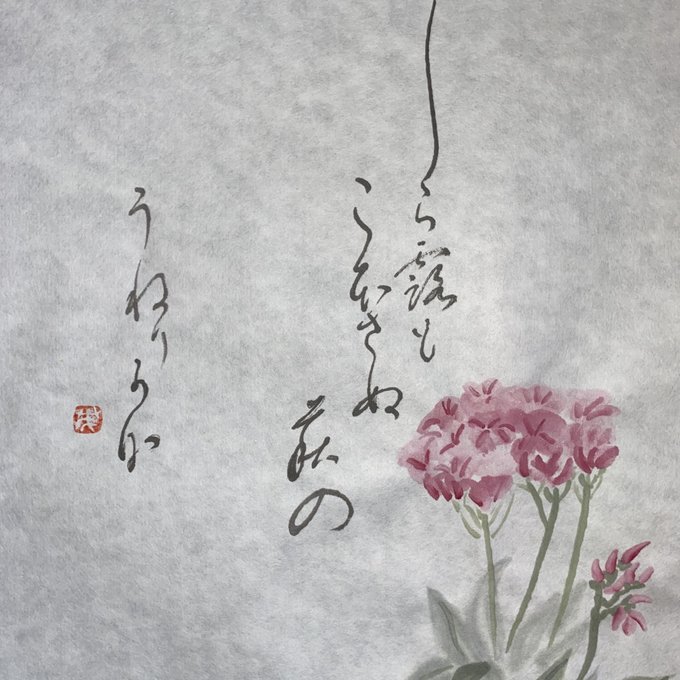 しら露も
こぼさぬ
萩の
うねりかな